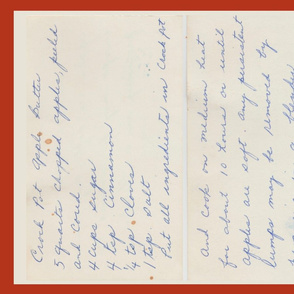 Crock Pot Apple Butter
5 quarts chopped apples, peeled
and cored.
4 cups sugar
4 tsp Cinnamon
1/4 tsp. Cloves
1 tsp. Salt
Put all ingredients in Crock Pot
and cook on medium heat
for about 10 hours or until
apples are soft. Any persistent
lumps may be removed by